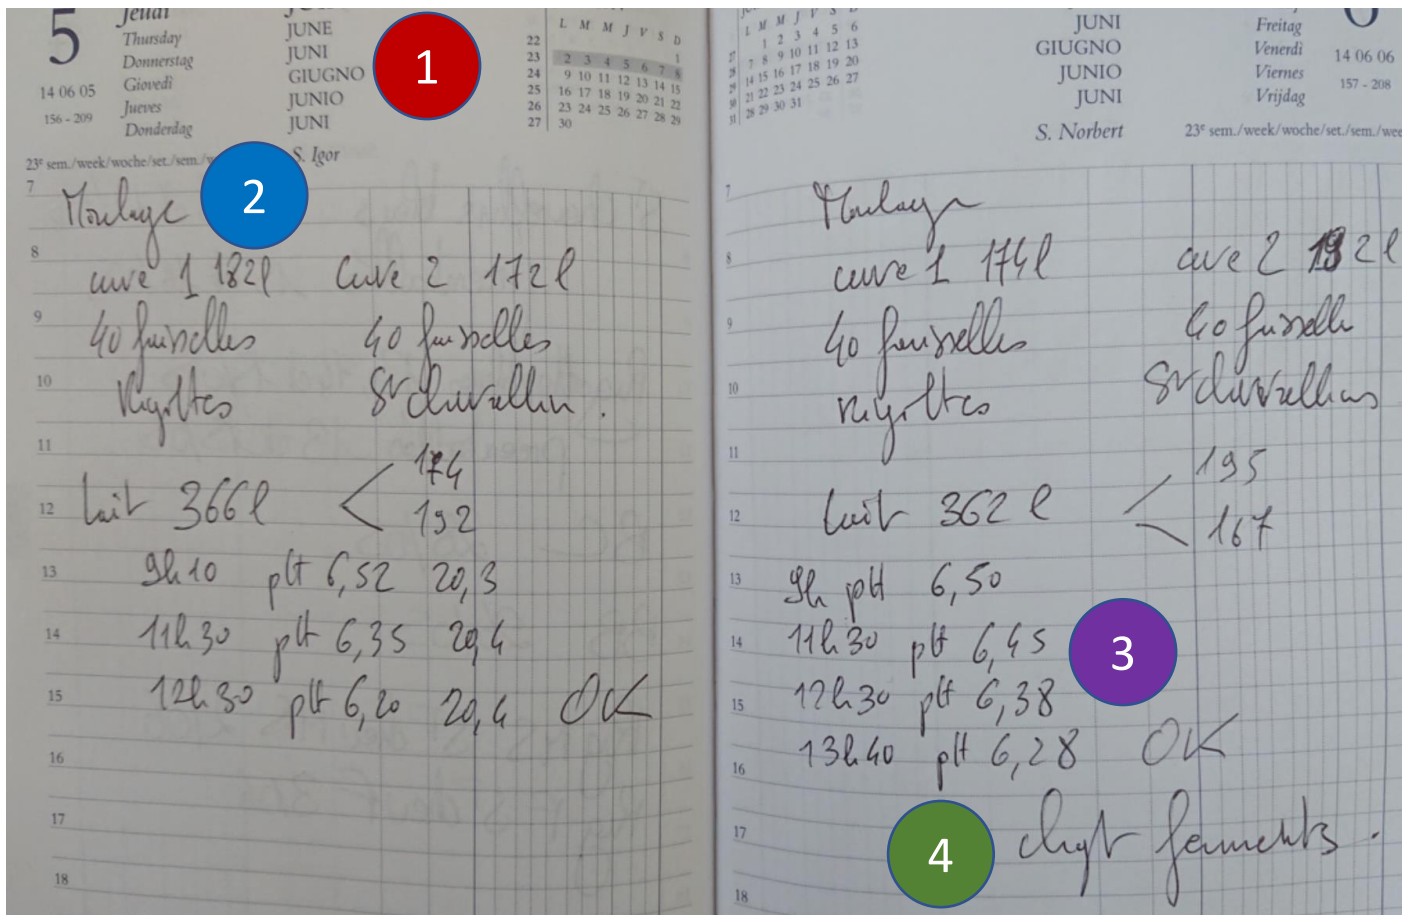 5
Jeudi
Thursday
Donnerstag
Giovedì
Jueves
Donderdag
14 06 05
156 - 209
JUNE
JUNI
GIUGNO
JUNIO
JUNI
S. Igor
23e sem./week/woche/set./sem./
L M M J V S D
22 1
23 2 3 4 5 6 7 8
24 9 10 11 12 13 14 15
25 16 17 18 19 20 21 22
26 23 24 25 26 27 28 29
27 30
1
2
7 Moulage
8 cuve 1 182l Cuve 2 172l
9 40 faisselles 40 faisselles
10 Rigottes St Marcellin.
11 174
12 lait 366l < 192
13 9h10 pH 6,52 20,3
14 11h30 pH 6,35 20,4
15 12h30 pH 6,20 20,4 OK
16
17
18
L M M J V S D
1 2 3 4 5 6
7 8 9 10 11 12 13
14 15 16 17 18 19 20
21 22 23 24 25 26 27
28 29 30 31
JUNI
GIUGNO
JUNIO
JUNI
S. Norbert
Freitag
Venerdì
Viernes
Vrijdag
14 06 06
157 - 208
23e sem./week/woche/set./sem./wee
7 Moulage
8 cuve 1 174l cuve 2 192l
9 40 faisselles 40 faisselle
10 rigottes St Marcellins
11 195
12 lait 362l < 167
13 9h pH 6,50
14 11h30 pH 6,45
3
15 12h30 pH 6,38
16 13h40 pH 6,28 OK
4
17 chgt ferments.
18